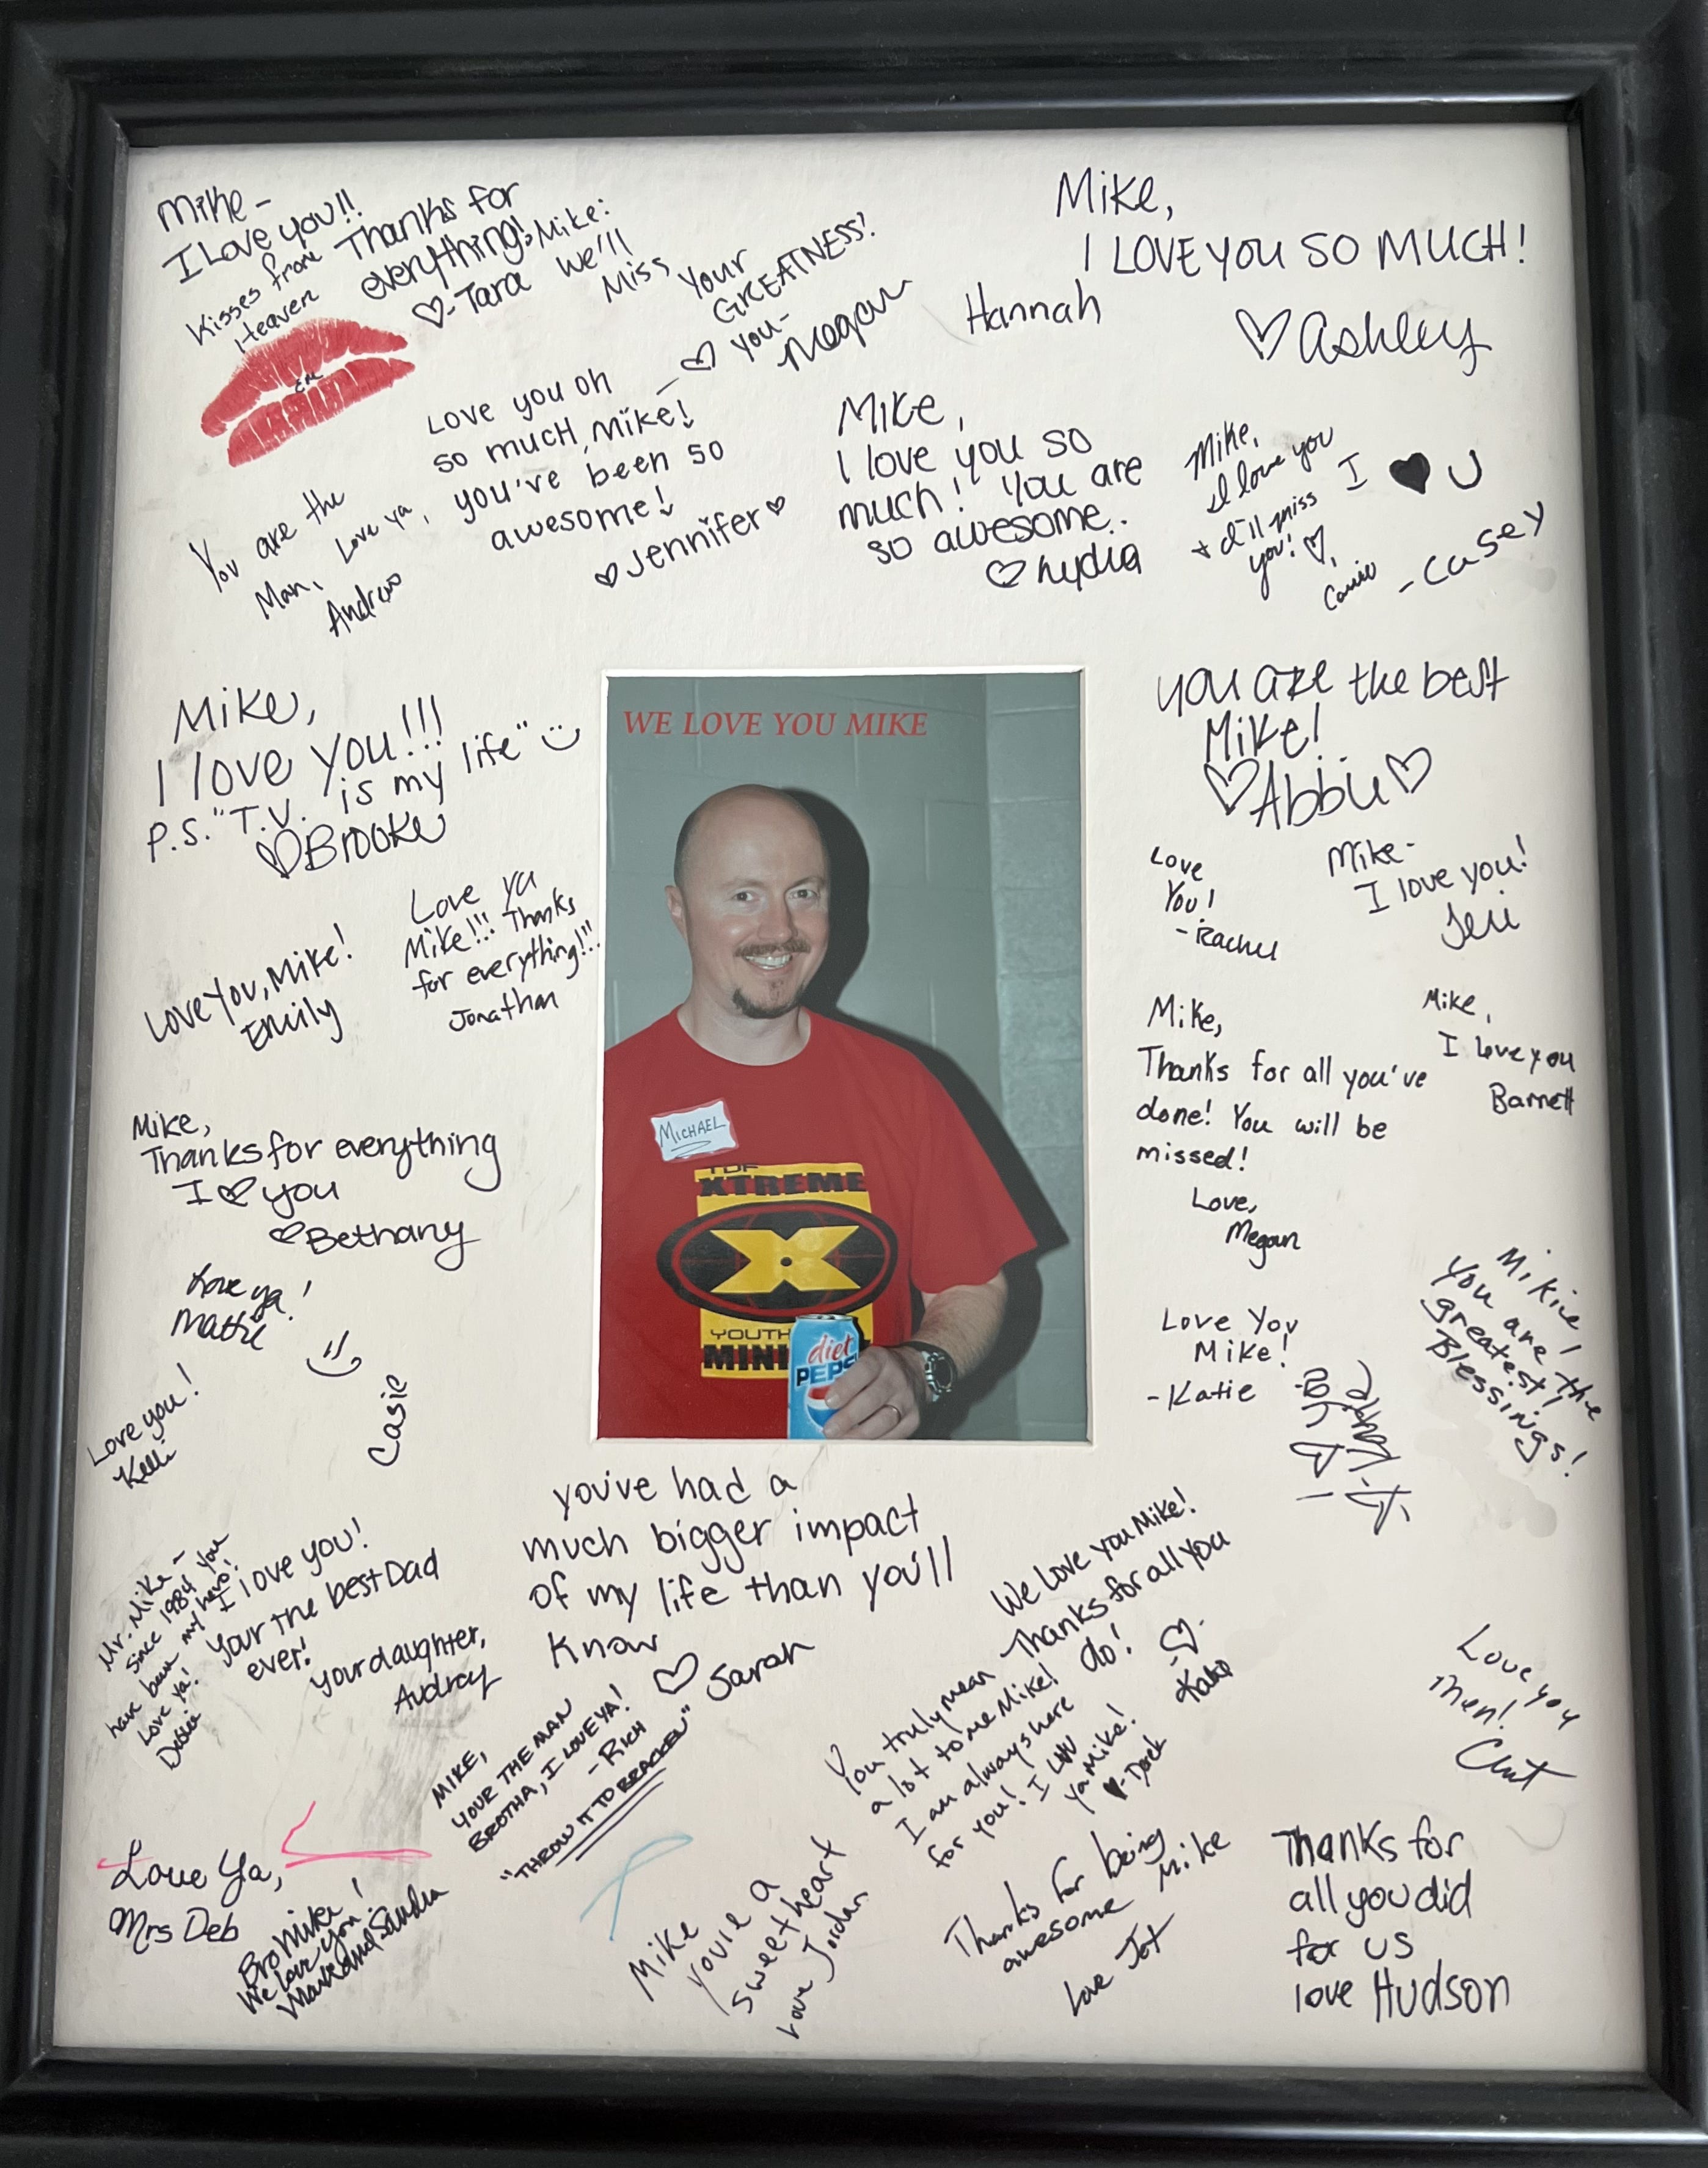 Mike-
I Love you!!
Kisses from
Heaven
EM
Thanks for
everything!
♡-Tara
Mike:
We'll
Miss
Your
GREATNESS!
♡ you-
Megan
Hannah
Mike,
I LOVE YOU SO MUCH!
♡ Ashley
Love you oh
so much, Mike!
you've been so
awesome!
♡Jennifer♡
You are the
Man, Love ya,
Andrew
Mike,
I love you so
much! You are
so awesome.
♡ Lydia
Mike,
I love you
+ I'll miss
you! ♡,
I ♥ U
-Casey
Mike,
I love you!!!
P.S. "T.V. is my life" :)
♡Brooke
WE LOVE YOU MIKE
MICHAEL
XTREME
X
YOUTH
MINI
diet
PEPSI
you are the best
Mike!
♡Abbie♡
Love
You!
-Rachel
Mike-
I love you!
Jeri
Love ya
Mike!!! Thanks
for everything!!!
Jonathan
Love You, Mike!
Emily
Mike,
I love you
Barrett
Mike,
Thanks for all you've
done! You will be
missed!
Love,
Megan
Mike,
Thanks for everything
I ♡ you
♡Bethany
Love ya!
Mattie
:)
Casie
Love you!
Kelli
Love You
Mike!
-Katie
I ♡ you
Mikie!
You are the
greatest!
Blessings!
you've had a
much bigger impact
of my life than you'll
know
♡ Sarah
Mr. Mike-
Since 1984 you
have been my hero!
Love ya!
I love you!
Your the best Dad
ever!
your daughter,
Audrey
MIKE,
YOUR THE MAN
BROTHA, I LOVE YA!
-RICH
"THROW IT TO BRACKEN"
We love you Mike!
Thanks for all you
do!
♡-
You truly mean
a lot to me Mike!
I am always here
for you! I luv
ya Mike!
♥-Derek
Love you
Man!
Clint
Love Ya,
Mrs Deb
Bro Mike!
We love you!
Mark and Sandra
Mike
you're a
sweetheart
Love Jordan
Thanks for being
awesome Mike
Love
Thanks for
all you did
for us
love Hudson